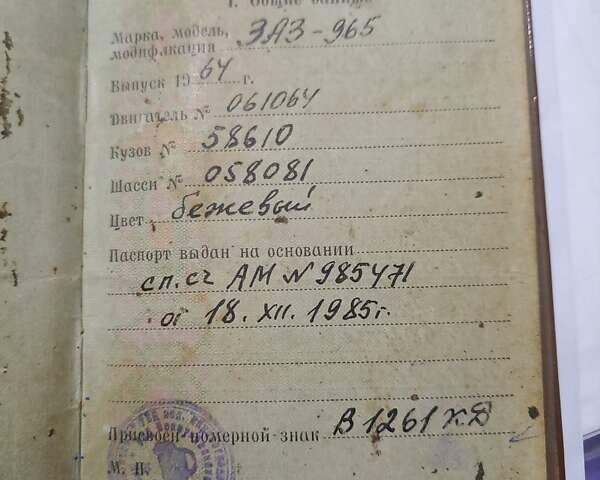 1. Общие данные
Марка, модель, ЗАЗ-965
модификация
Выпуск 19 64 г.
Двигатель № 061064
Кузов № 58610
Шасси № 058081
Цвет бежевый
Паспорт выдан на основании
сп. сч АМ № 985471
от 18. XII. 1985г.
Присвоен номерной знак В 1261 КД
М. П.